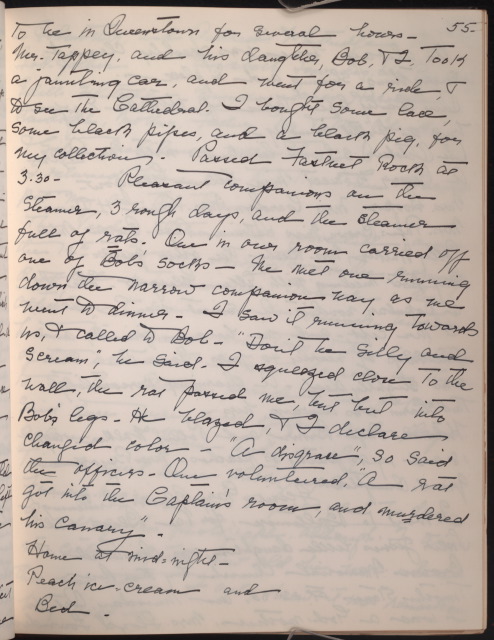 55-
To be in Queenstown for several hours-
Mr. Tappey, and his daughter, Bob, & I, took
a jaunting car, and went for a ride, &
to see the Cathedral. I bought some lace,
some black pipes, and a black pig, for
my collection. Passed Fastnet Rock at
3.30- Pleasant companions on the
steamer, 3 rough days, and the steamer
full of rats. One in our room carried off
one of Bob's socks- We met one running
down the narrow companion way as we
went to dinner- I saw it running towards
us, & called to Bob- "Don't be silly and
scream", he said. I squeezed close to the
wall, the rat passed me, but but into
Bob's legs- He blazed, & I declare
changed color- "A disgrace", so said
the officers- One volunteered, "A rat
got into the Captain's room, and murdered
his canary".
Home at mid=night-
Peach ice-cream and
Bed.